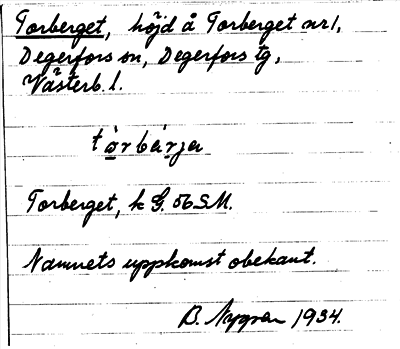 Torberget, höjd å Torberget nr 1,
Degerfors sn, Degerfors tg,
Västerb. l.
tòrbárja
Torberget, k G. 56 S.M.
Namnets uppkomst obekant.
B. Nygren 1934.